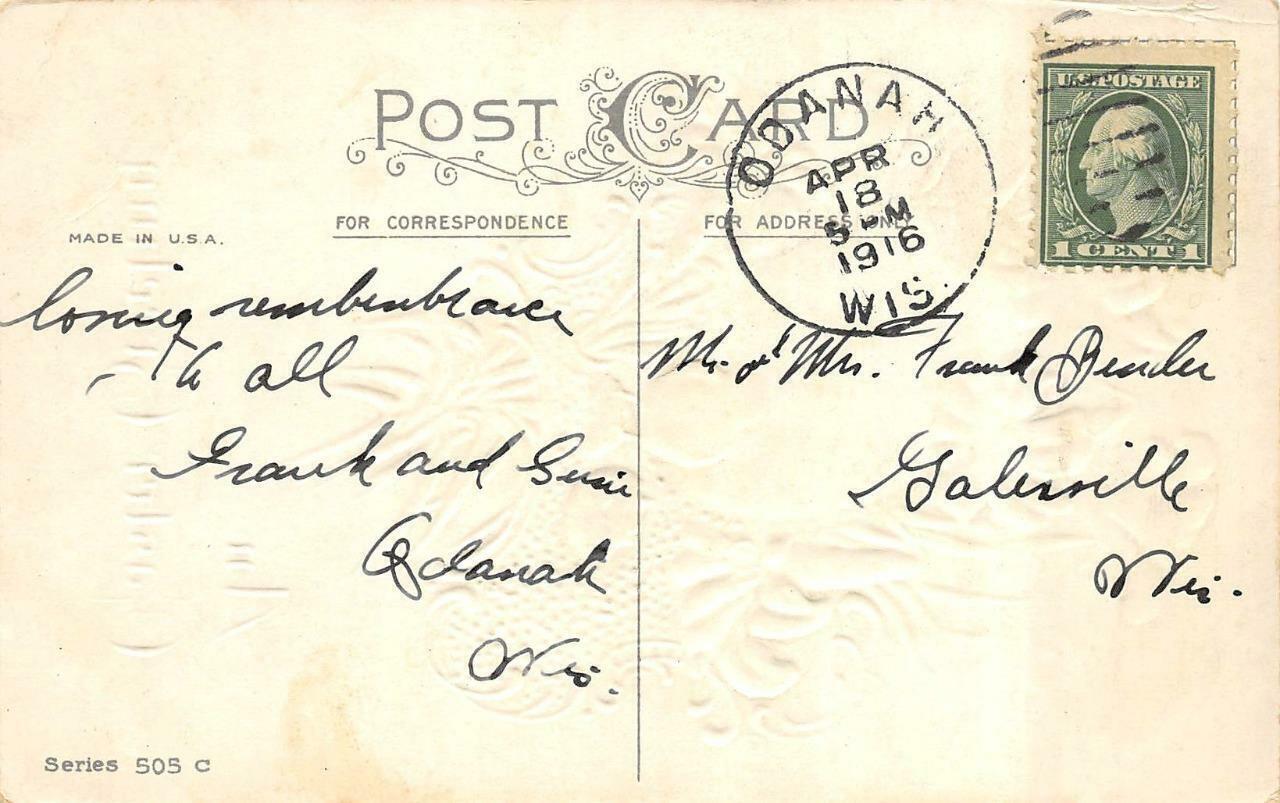 POST CARD
FOR CORRESPONDENCE
FOR ADDRESS ONLY
MADE IN U.S.A.
ODANAH
APR
18
5 - M
1916
WIS.
U.S. POSTAGE
1 CENT 1
loving remembrance
to all
Frank and Susie
Odanah
Wis.
Mr. & Mrs. Frank Bender
Galesville
Wis.
Series 505 C